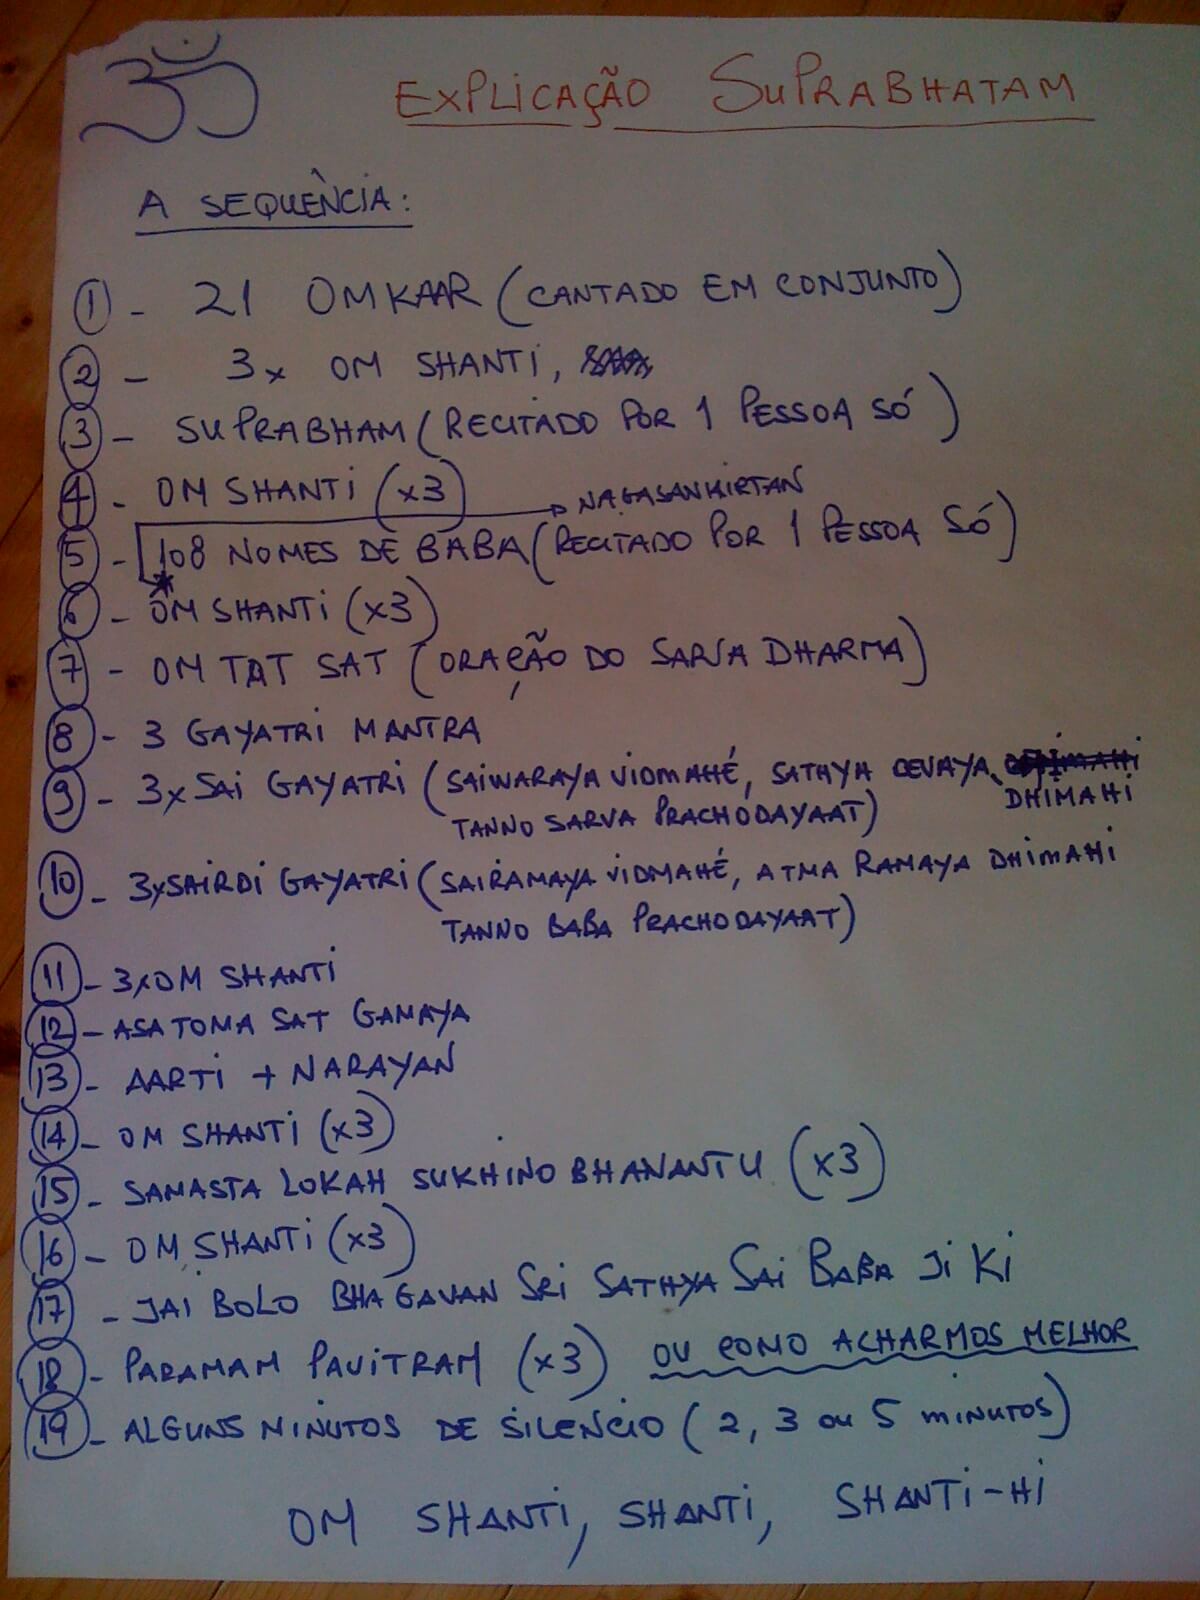 ॐ
EXPLICAÇÃO SUPRABHATAM
A SEQUÊNCIA:
1 - 21 OMKAAR (CANTADO EM CONJUNTO)
2 - 3x OM SHANTI,
3 - SUPRABHAM (RECITADO POR 1 PESSOA SÓ)
4 - OM SHANTI (x3)
NAGASANKIRTAN
5 - 108 NOMES DE BABA (RECITADO POR 1 PESSOA SÓ)
6 - OM SHANTI (x3)
7 - OM TAT SAT (ORAÇÃO DO SARVA DHARMA)
8 - 3 GAYATRI MANTRA
9 - 3x SAI GAYATRI (SAIWARAYA VIDMAHÉ, SATHYA DEVAYA DHIMAHI
TANNO SARVA PRACHODAYAAT)
10 - 3x SAIRDI GAYATRI (SAIRAMAYA VIDMAHÉ, ATMA RAMAYA DHIMAHI
TANNO BABA PRACHODAYAAT)
11 - 3x OM SHANTI
12 - ASATOMA SAT GAMAYA
13 - AARTI + NARAYAN
14 - OM SHANTI (x3)
15 - SAMASTA LOKAH SUKHINO BHAVANTU (x3)
16 - OM SHANTI (x3)
17 - JAI BOLO BHAGAVAN SRI SATHYA SAI BABA JI KI
18 - PARAMAM PAVITRAM (x3) OU COMO ACHARMOS MELHOR
19 - ALGUNS MINUTOS DE SILENCIO (2, 3 ou 5 MINUTOS)
OM SHANTI, SHANTI, SHANTI-HI